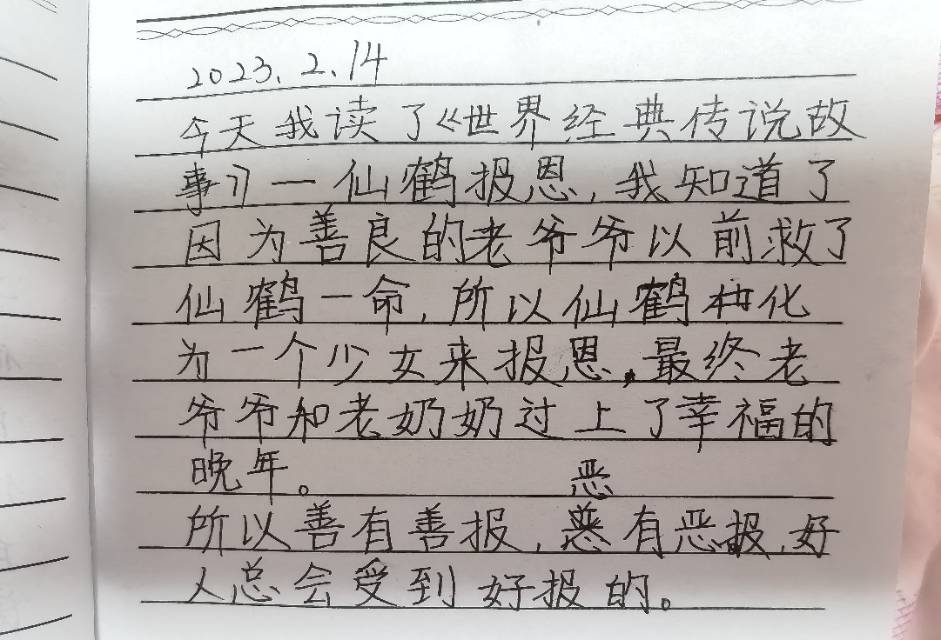 2023.2.14
今天我读了《世界经典传说故
事》一仙鹤报恩,我知道了
因为善良的老爷爷以前救了
仙鹤一命,所以仙鹤化
为一个少女来报恩,最终老
爷爷和老奶奶过上了幸福的
晚年。
恶
所以善有善报,有恶报,好
人总会受到好报的。